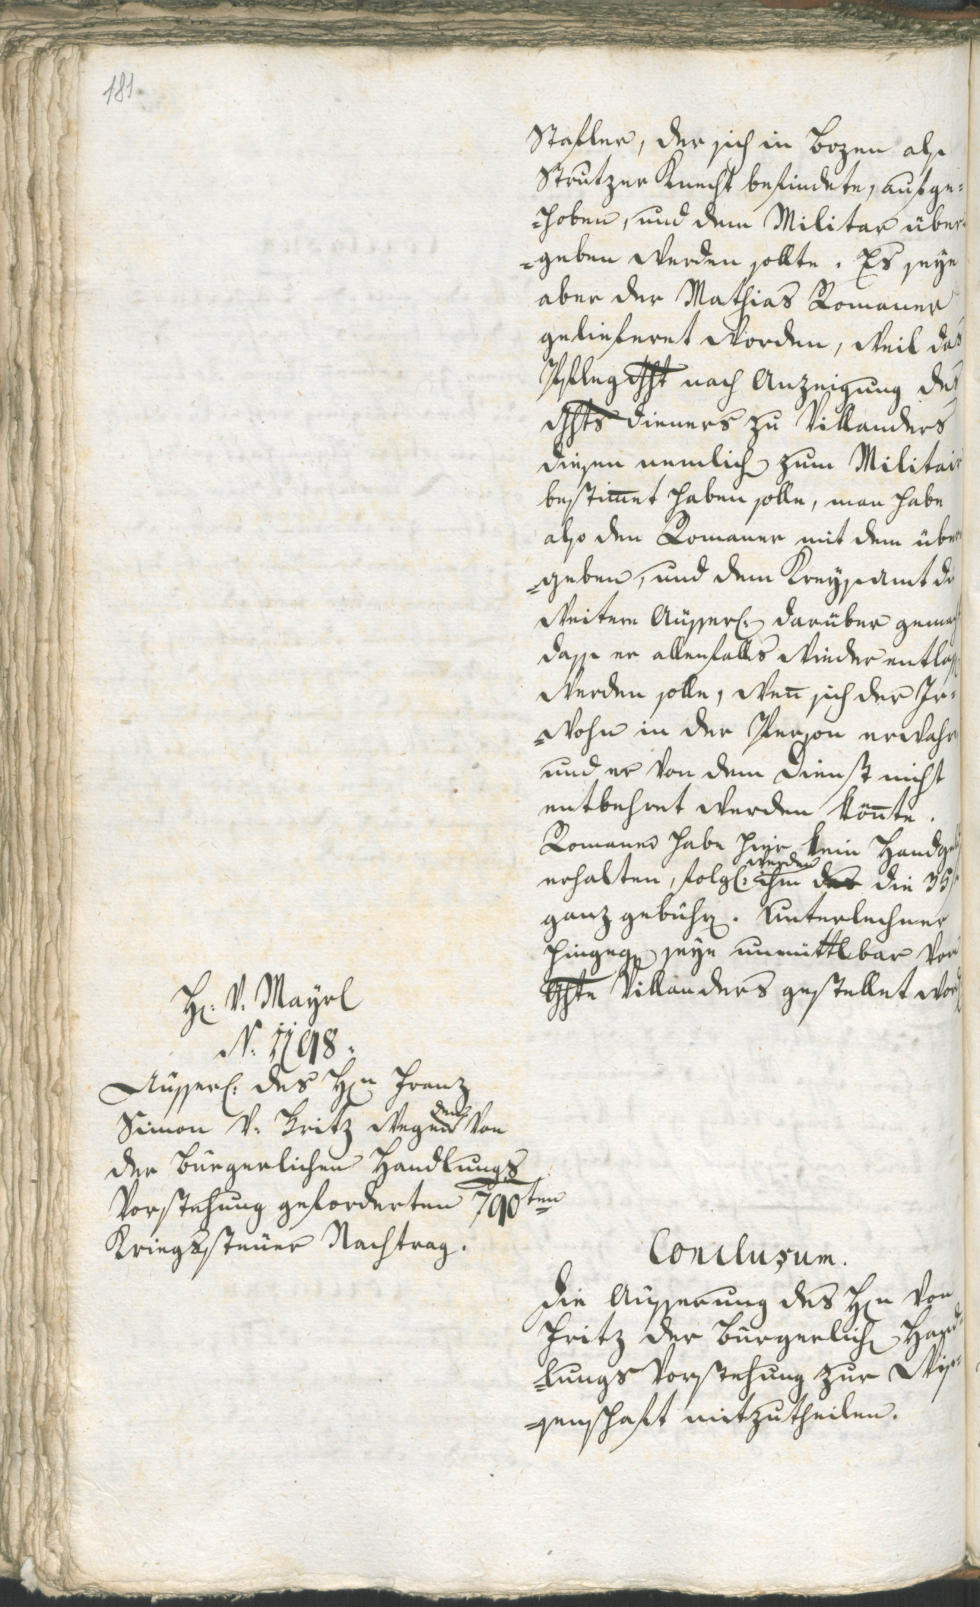 181.
Stafler, der sich in Bozen als
Strutzer Knecht befindete, aufge=
=hoben, und dem Militar über=
=geben werden sollte. Es seye
aber der Mathias Romaner
geliefert worden, weil das
Pfleggcht nach Anzeigung des
gchtsdieners zu Villanders
diesen nemlich zum Militair
bestim̅et haben solle, man habe
also den Romaner mit dem über
=geben, und dem Kreysamt die
weitere Aüsserl: darüber gemach
dass er allenfalls wieder entlass
werden solle, wen̅ sich der Ir=
=wohn in der Person erwahr
und er von dem Dienst nicht
entbehret werden kön̅te.
Romaner habe hier kein Handge
erhalten, folgl: werden ihm die 35
ganz gebühr. Unterlechner
hingegen seye unmittlbar von
Gchte Villanders gestellet word
H: v. Mayrl
N: 1198.
Aüsserl: des Hn Franz
Simon v. Fritz wegen dem von
der Bürgerlichen Handlungs
Vorstehung geforderten 790ten
Kriegssteüer Nachtrag.
Conclusum.
Die Aüsserung des Hn von
Fritz der Bürgerlich Hand=
=lungs Vorstehung zur Wis=
=senschaft mitzutheilen.